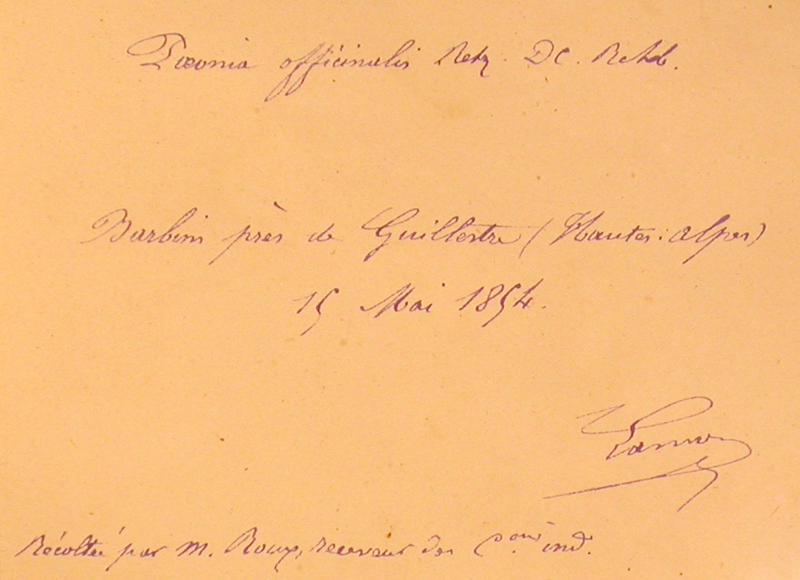 Pæonia officinalis Retz. DC. Rchb.
Barbin près de Guillestre (Hautes-Alpes)
15 Mai 1854.
Récoltée par M. Roux, receveur des C.ons ind.